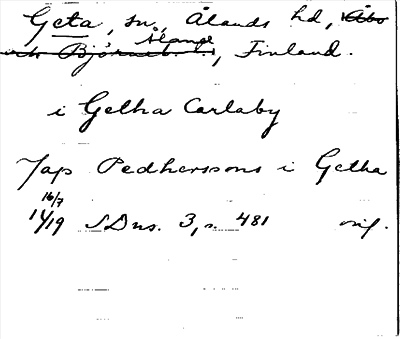 Geta, sn, Ålands hd, Åbo
Ålands
och Björneb. l., Finland.
i Getha Carlaby
Jap Pedherssons i Getha
16/7
14/19 SDns. 3, s. 481 orig.